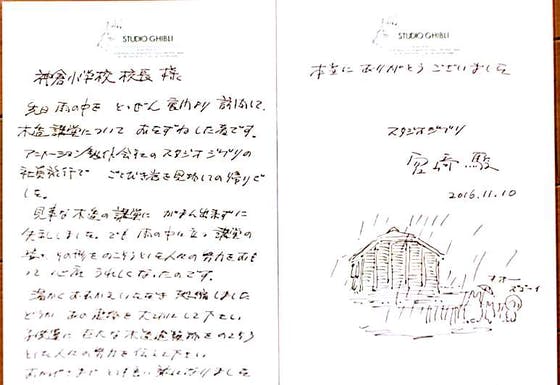 STUDIO GHIBLI
神倉小学校 校長 様
先日 雨の中を とつぜん 裏門より 訪問して、
木造講堂について おたずねした者です。
アニメーション制作会社のスタジオジブリの
社員旅行で ごとびき岩を見物しての帰りで
した。
見事な木造の講堂に がまん出来ずに
失礼しました。でも 雨の中に立つ 講堂の
姿、 をのこそうという人々の努力をおも
って 心底 うれしくなったのです。
温かく おむかえいただき 恐縮しました
どうか あの建物を 大切にして下さい
子供達に 木造建築物をのこそう
とした人々の努力を伝えて下さい
おかげさまで とても良い旅になりました
STUDIO GHIBLI
本当に ありがとう ございました。
スタジオジブリ
宮崎 駿
2016.11.10
オオー
スゴーイ